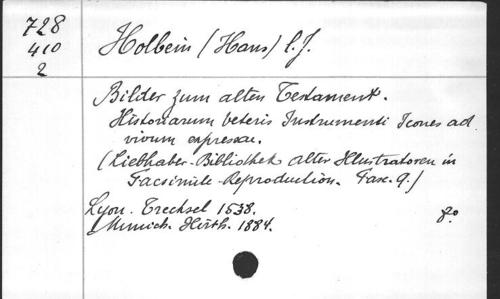 728
410
2
Holbein (Hans) l. J.
Bilder zum alten Testament.
Historiarum Veteris Instrumenti Icones ad
vivum expressae.
(Liebhaber-Bibliothek alter Illustratoren in
Facsimile-Reproduction. Fasc. 9.)
Lyon. Trechsel 1538.
Munich. Hirth. 1884. 8o